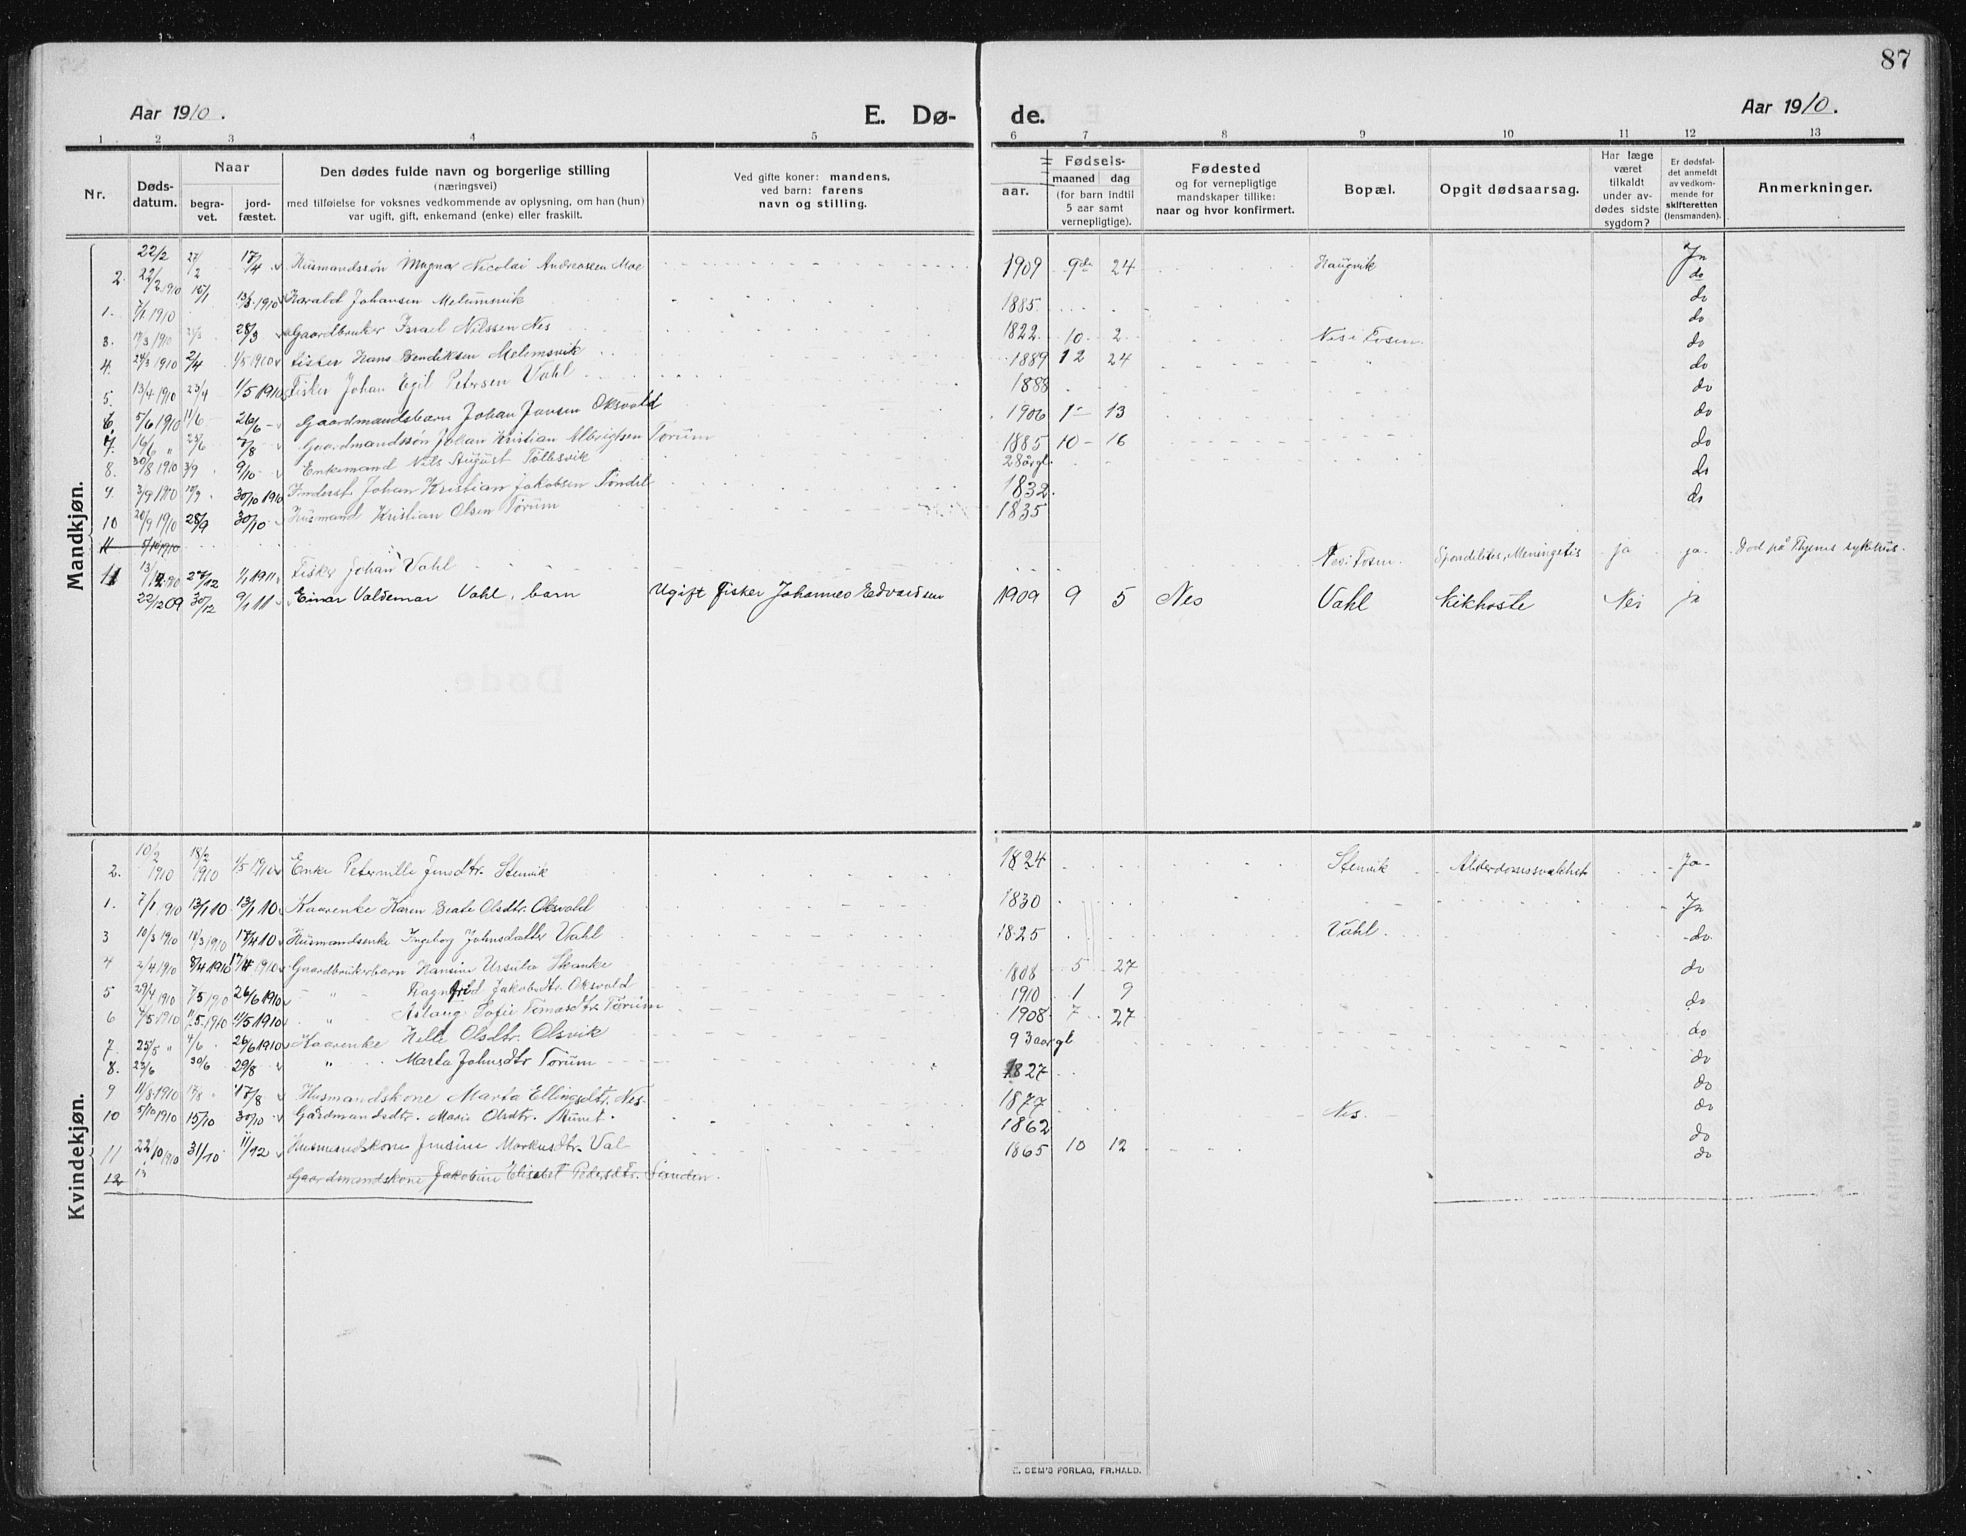 87
Aar 1910. E. Dø- de. Aar 1910.
1 2 3 4 5 6 7 8 9 10 11 12 13
Nr.
Døds-
datum.
Naar
begra-
vet.
jord-
fæstet.
Den dødes fulde navn og borgerlige stilling
(næringsvei)
med tilføielse for voksnes vedkommende av oplysning, om han (hun)
var ugift, gift, enkemand (enke) eller fraskilt.
Ved gifte koner: mandens,
ved barn: farens
navn og stilling.
aar.
Fødsels-
maaned dag
(for barn indtil
5 aar samt
vernepligtige).
Fødested
og for vernepligtige
mandskaper tillike:
naar og hvor konfirmert.
Bopæl.
Opgit dødsaarsag.
Har læge
været
tilkaldt
under av-
dødes sidste
sygdom?
Er dødsfal-
det anmeldt
av vedkom-
mende for
skifteretten
(lensmanden).
Anmerkninger.
Mandkjøn.
2. 22/2 22/2 1910 27/2 17/4 Husmandssøn Magnar Nicolai Andreassen Moe 1909 9de 24 Haugvik Ja
1. 7/1 1910 15/1 13/3 1910 Harald Johansen Melumsvik 1885 do
3. 17/3 1910 28/3 Gaardbruker Israel Nilssen Nes 1822 10 2 Nes i Fosen do
4. 24/3 1910 2/4 1/5 1910 Fisker Hans Bendiksen Melemsvik 1889 12 24 do
5. 13/4 1910 23/4 1/5 1910 Fisker Johan Egil Petersen Vahl 1888 do
6. 5/6 1910 11/6 26/6 Gaardmandsbarn Johan Jansen Oksvold 1906 1 13 do
7. 16/6 " 25/6 7/8 Gaardmandssøn Johan Kristian Albrigtsen Tørum 1885 10 16 do
8. 30/8 1910 3/9 9/10 Enkemand Nils August Tølbsvik 28 årgl. do
9. 3/9 1910 10/9 30/10 1910 Johan Kristian Jakobsen Tøndel 1832 do
10 20/9 1910 28/9 30/10 Husmand Kristian Olsen Tørum 1835 do
11 5/10 1910
11 27/12 1/1 1911 Fisker Johan Vahl Nes i Fosen Spondelites, Meningetis ja ja Død på Thjems sykehus.
22/12 09 30/12 9/1 11 Einar Valdemar Vahl, barn Ugift fisker Johannes Edvardsen 1909 9 5 Nes Vahl Kikhoste Nei ja
Kvindekjøn.
2. 10/2 1910 18/2 1910 1/5 1910 Enke Peternille Jensdtr. Stenvik 1824 Stenvik Alderdomssvakhet Ja
1. 7/1 1910 13/1 10 13/1 10 Kaarenke Karen Beate Olsdtr. Oksvold 1830 Ja
3 10/3 1910 18/3 1910 17/4 10 Husmandsenke Ingeborg Johnsdatter Vahl 1825 Vahl do
4 2/4 1910 8/4 1910 17/4 1910 Gaardbrukerbarn Hansine Ursula Skanke 1808 5 27 do
5 29/4 1910 7/5 190 26/6 1910 " " Ragnfrid Jakobsdtr. Oksvold 1910 1 9 do
6 7/5 1910 11/5 1910 11/5 1910 " Aslaug Sofie Tomasdtr. Tørum 1908 7 27 do
7. 25/5 " 4/6 26/6 1910 Kaarenke Helle Olsdtr. Olsvik 93 aar gl do
8. 23/6 30/6 29/8 " Marta Johnsdtr Tørum 1827 do
9 11/8 1910 17/8 17/8 Husmandskone Marta Ellingsdtr. Nes 1877 do
10 5/10 1910 15/10 30/10 Gårdmandsdtr. Marie Olsdtr. Hunet 1862 Nes do
11 22/10 1910 31/10 11/12 Husmandskone Jensine Markusdtr. Val 1865 10 12 do
12 Gaardmandskone Jakobine Elisabet Pedersdtr. Sanden.
E. SEM'S FORLAG, FR.HALD.